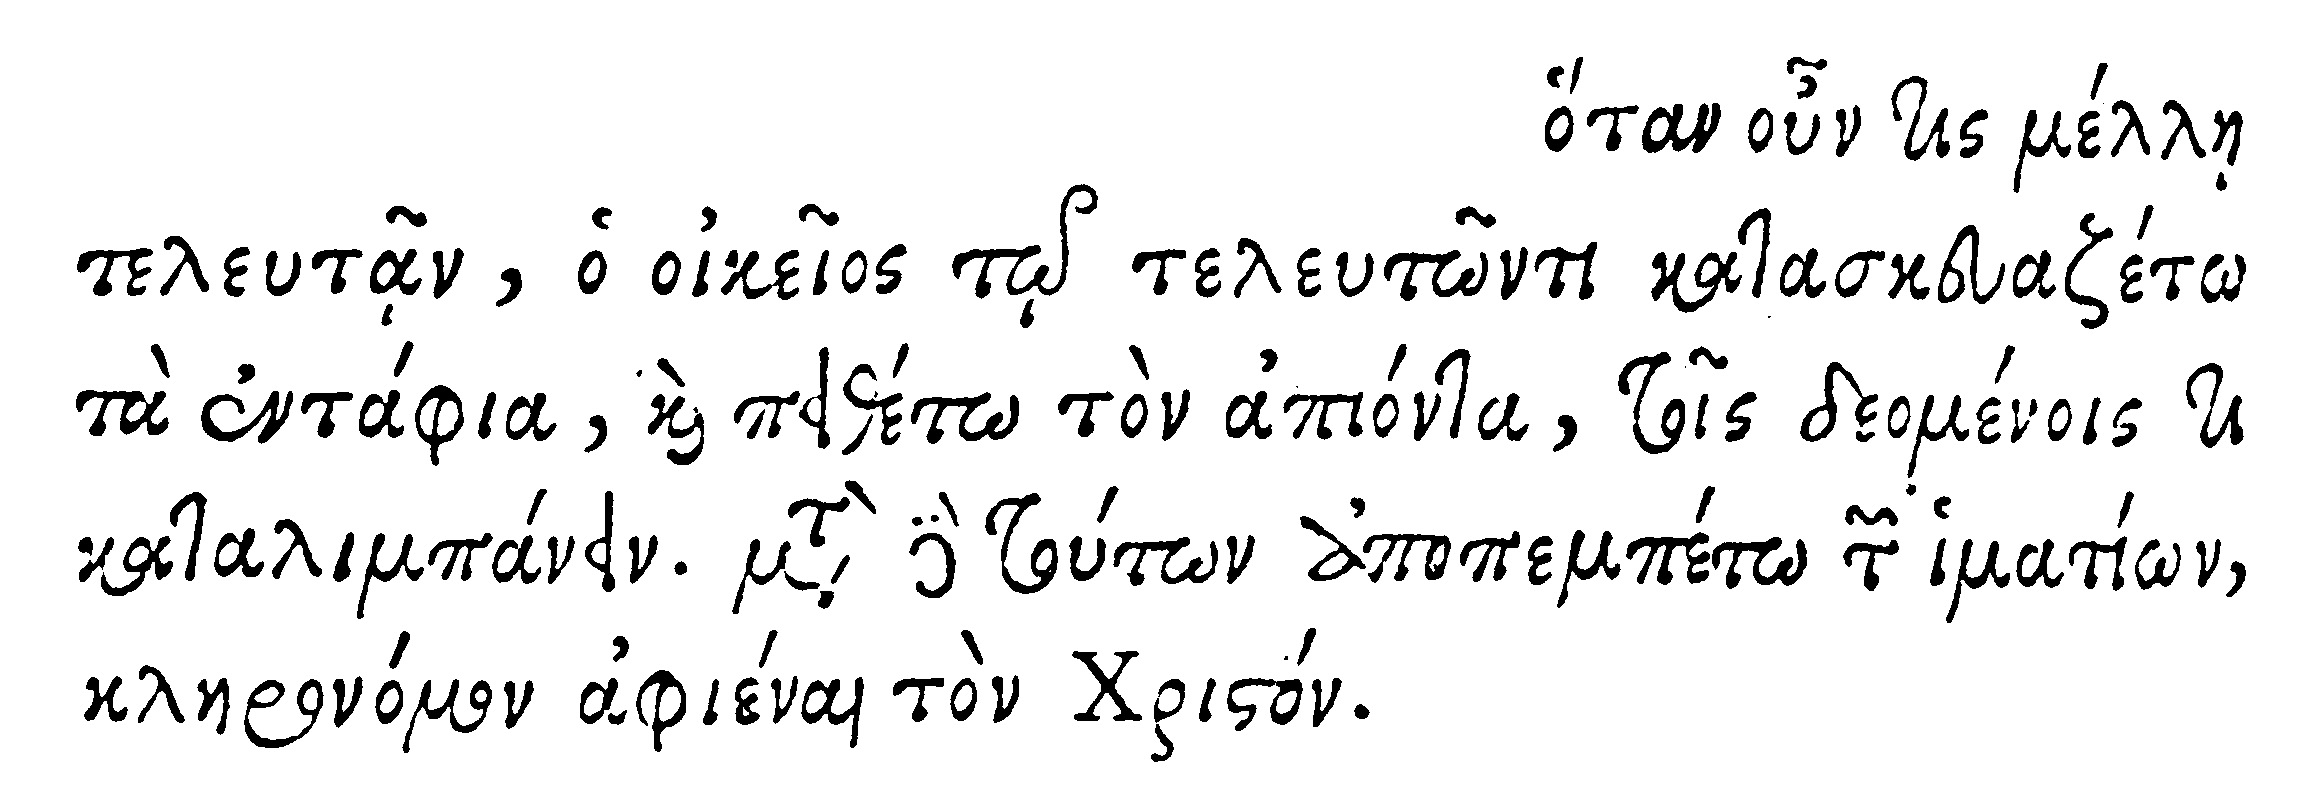 ὅταν οὖν τις μέλλῃ
τελευτᾷν, ὁ οἰκεῖος τῷ τελευτῶντι κατασκευαζέτω
τὰ ἐντάφια, καὶ πειθέτω τὸν ἀπιόντα, τοῖς δεομένοις τι
καταλιμπάνειν. μετὰ δὲ τούτων ἀποπεμπέτω τῶν ἱματίων,
κληρονόμον ἀφιέναι τὸν Χριστόν.